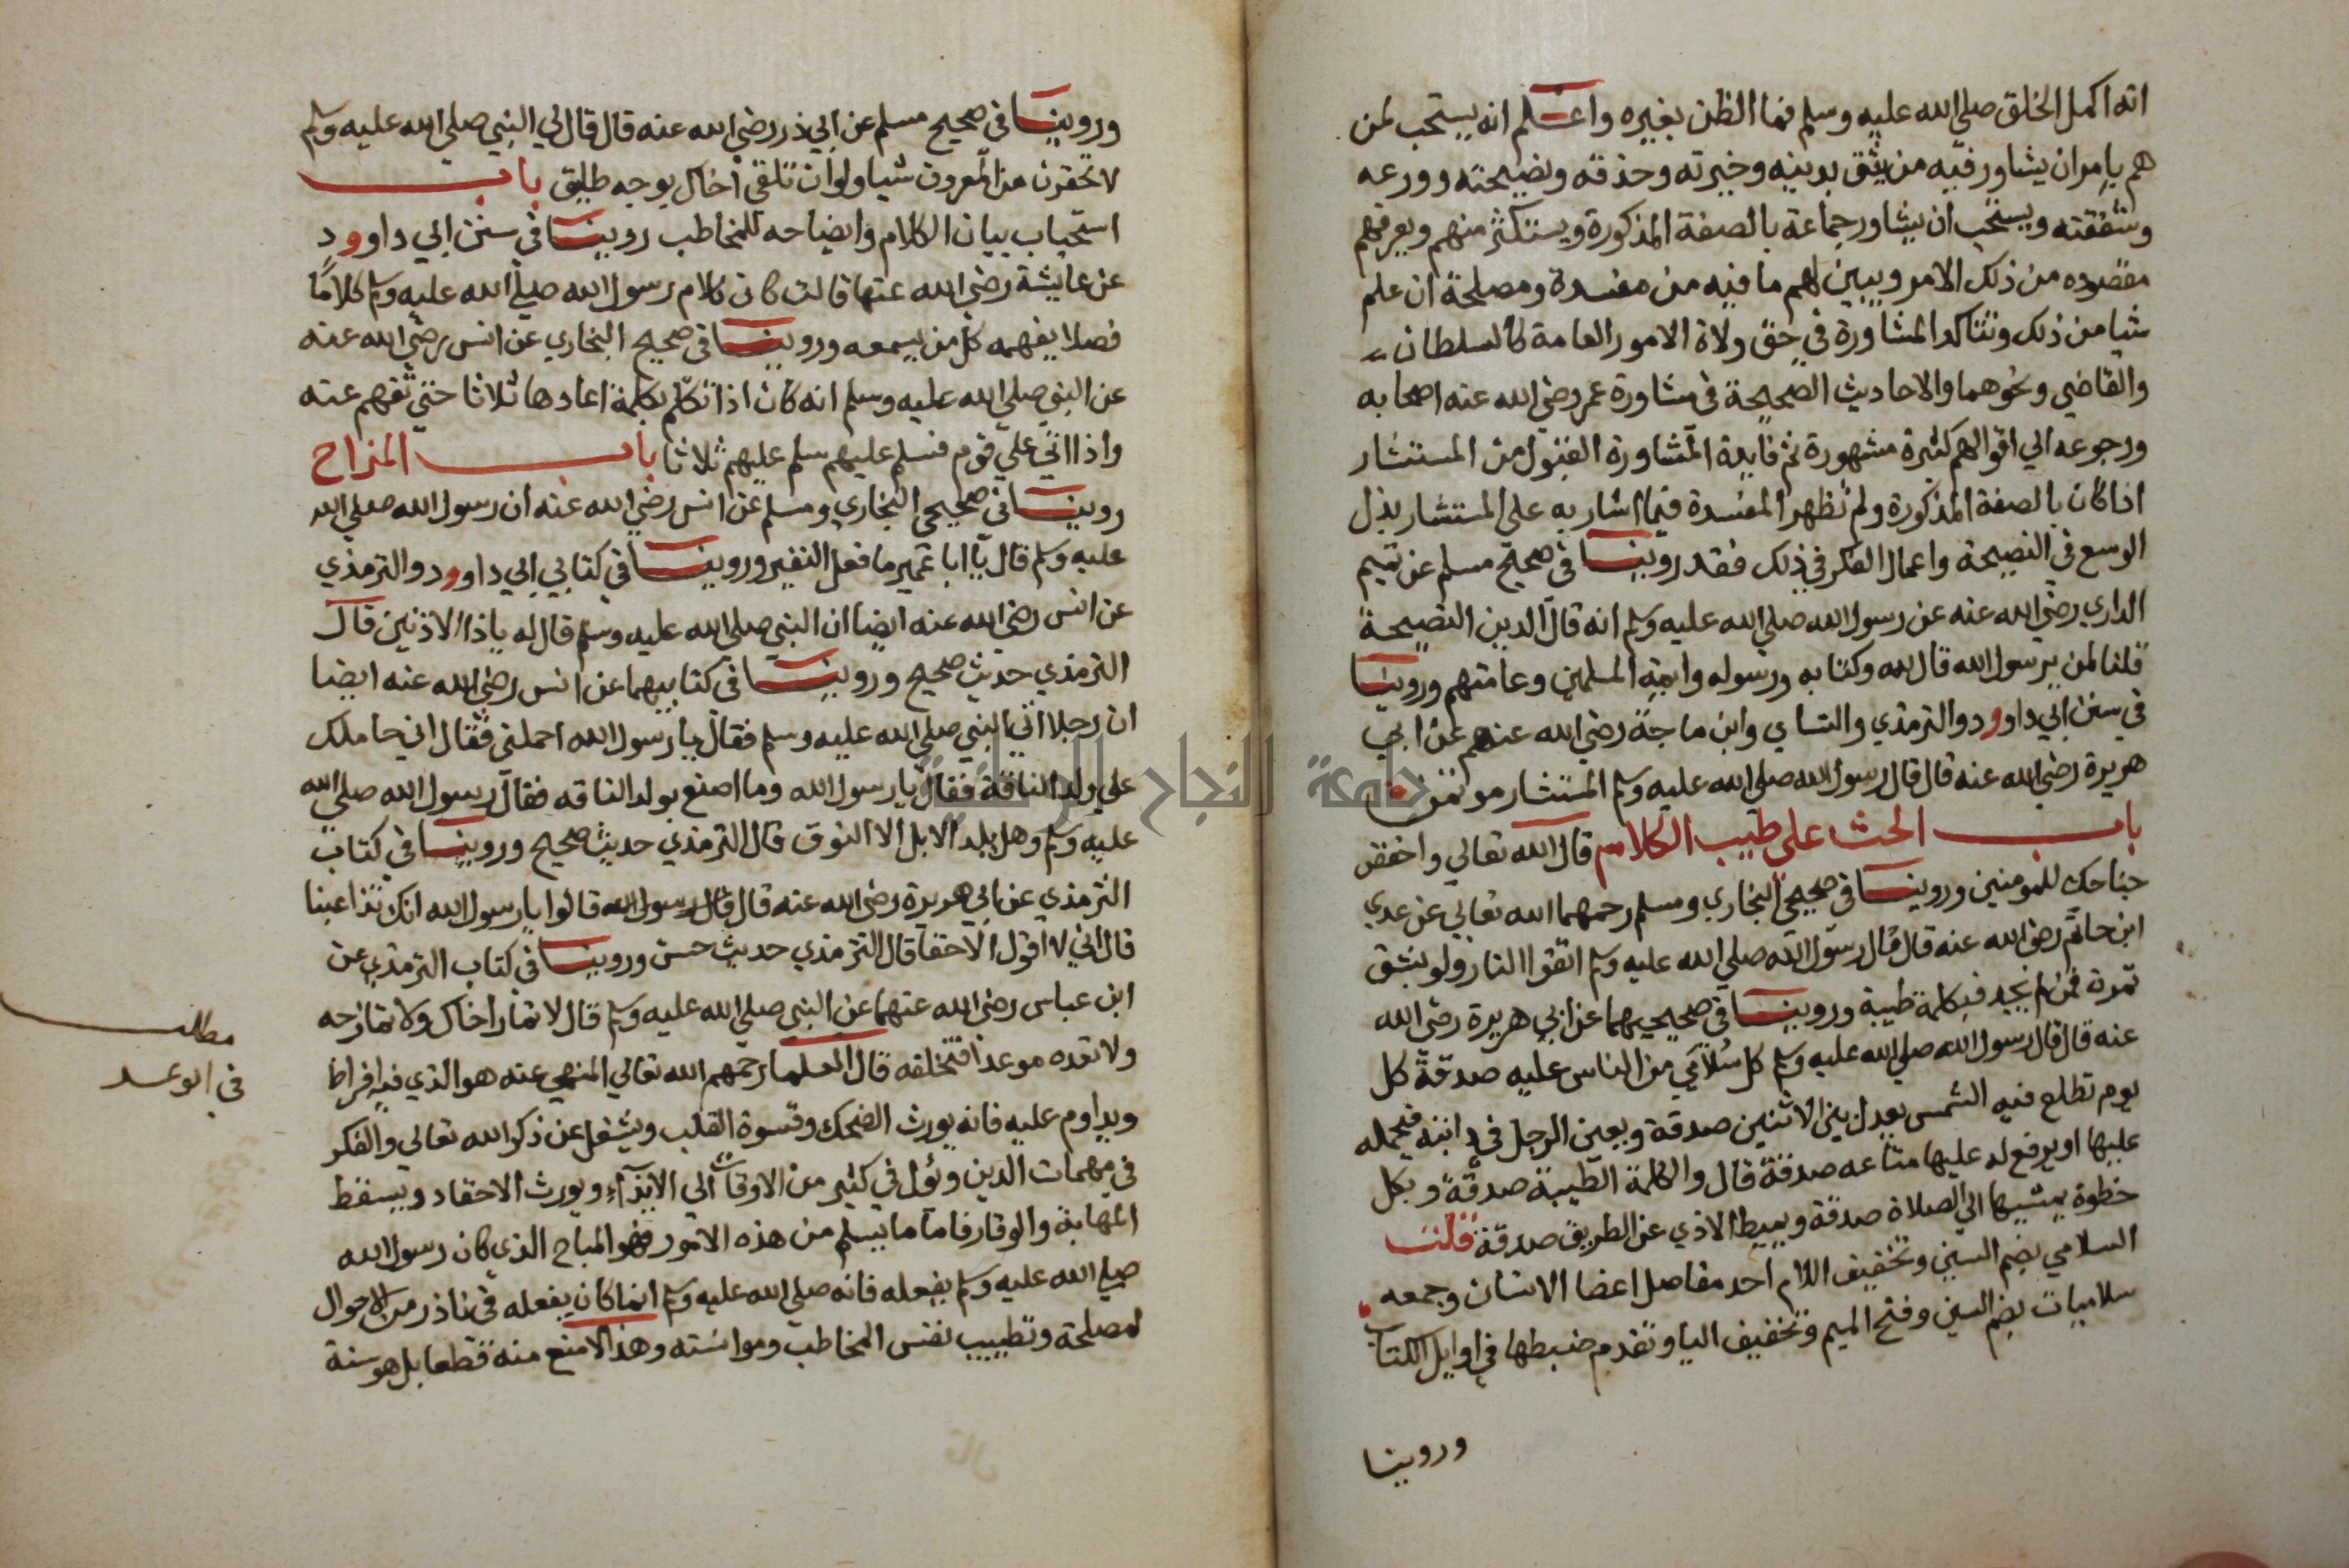 انه اكمل الخلق صلي الله عليه وسلم فما الظن بغيره واعلم انه يستحب لمن
هم بامر ان يشاور فيه من يثق بدينه وخبرته وحذقه ونصيحته وورعه
وشفقته ويستحب ان يشاور جماعة بالصفة المذكورة ويستكثر منهم ويعرفهم
مقصوده من ذلك الامر ويبين لهم ما فيه من مفسدة ومصلحة ان علم
شيا من ذلك وتتاكد المشاورة في حق ولاة الامور العامة كالسلطان
والقاضي ونحوهما والاحاديث الصحيحة في مشاورة عمر رضي الله عنه اصحابه
ورجوعه الي اقوالهم كثيرة مشهورة ثم فايدة المشاورة القبول من المستشار
اذا كان بالصفة المذكورة ولم تظهر المفسدة فيما اشار به على المستشار بذل
الوسع في النصيحة واعمال الفكر في ذلك فقد روينا في صحيح مسلم عن تميم
الداري رضي الله عنه عن رسول الله صلي الله عليه وسلم انه قال الدين النصيحة
قلنا لمن يرسول الله قال لله وكتابه ورسوله وايمة المسلمين وعامتهم وروينا
في سنن ابي داوود والترمذي والنساي وابن ماجة رضي الله عنهم عن ابي
هريرة رضي الله عنه قال قال رسول الله صلي الله عليه وسلم المستشار موتمن
باب الحث علي طيب الكلام قال الله تعالي واخفض
جناحك للمومنين وروينا في صحيحي البخاري ومسلم رحمهما الله تعالي عن عدي
ابن حاتم رضي الله عنه قال قال رسول الله صلي الله عليه وسلم اتقوا النار ولو بشق
تمرة فمن لم يجد فبكلمة طيبة وروينا في صحيحيهما عن ابي هريرة رضي الله
عنه قال قال رسول الله صلي الله عليه وسلم كل سلامي من الناس عليه صدقة كل
يوم تطلع فيه الشمس يعدل بين الاثنين صدقة ويعين الرجل في دابته فيحمله
عليها او يرفع له عليها متاعه صدقة قال والكلمة الطيبة صدقة وبكل
خطوة يمشيها الي الصلاة صدقة ويميط الاذي عن الطريق صدقة قلت
السلامي بضم السين وتخفيف اللام احد مفاصل اعضا الانسان وجمعه
سلاميات بضم السين وفتح الميم وتخفيف اليا وتقدم ضبطها في اوايل الكتاب
وروينا
وروينا في صحيح مسلم عن ابي ذر رضي الله عنه قال قال لي النبي صلي الله عليه وسلم
لا تحقرن من المعروف شيا ولو ان تلقي اخاك بوجه طليق باب
استحباب بيان الكلام وايضاحه للمخاطب روينا في سنن ابي داوود
عن عايشة رضي الله عنها قالت كان كلام رسول الله صلي الله عليه وسلم كلاما
فصلا يفهمه كل من يسمعه وروينا في صحيح البخاري عن انس رضي الله عنه
عن النبي صلي الله عليه وسلم انه كان اذا تكلم بكلمة اعادها ثلاثا حتي تفهم عنه
واذا اتي علي قوم فسلم عليهم سلم عليهم ثلاثا باب المزاح
روينا في صحيحي البخاري ومسلم عن انس رضي الله عنه ان رسول الله صلي الله
عليه وسلم قال يا ابا عمير ما فعل النغير وروينا في كتابي ابي داوود والترمذي
عن انس رضي الله عنه ايضا ان النبي صلي الله عليه وسلم قال له ياذا الاذنين قال
الترمذي حديث صحيح وروينا في كتابيهما عن انس رضي الله عنه ايضا
ان رجلا اتي النبي صلي الله عليه وسلم فقال يا رسول الله احملني فقال اني حاملك
علي ولد الناقة فقال يا رسول الله وما اصنع بولد الناقه فقال رسول الله صلي الله
عليه وسلم وهل يلد الابل الا النوق قال الترمذي حديث صحيح وروينا في كتاب
الترمذي عن ابي هريرة رضي الله عنه قال قال رسول الله قالوا يا رسول الله انك تداعبنا
قال اني لا اقول الا حقا قال الترمذي حديث حسن وروينا في كتاب الترمذي عن
ابن عباس رضي الله عنهما عن النبي صلي الله عليه وسلم قال لا تمار اخاك ولا تمازحه
ولا تعده موعدا فتخلفه قال العلما رحمهم الله تعالي المنهي عنه هو الذي فيه افراط
ويداوم عليه فانه يورث الضحك وقسوة القلب ويشغل عن ذكر الله تعالي والفكر
في مهمات الدين ويؤل في كثير من الاوقات الي الايذآء ويورث الاحقاد ويسقط
المهابة والوقار فاما ما يسلم من هذه الامور فهو المباح الذي كان رسول الله
صلي الله عليه وسلم يفعله فانه صلي الله عليه وسلم انما كان يفعله في ناذر من الاحوال
لمصلحة وتطييب نفس المخاطب وموانسته وهذا لا منع منه قطعا بل هو سنة
مطلب
في الوعد
جامعة النجاح الوطنية